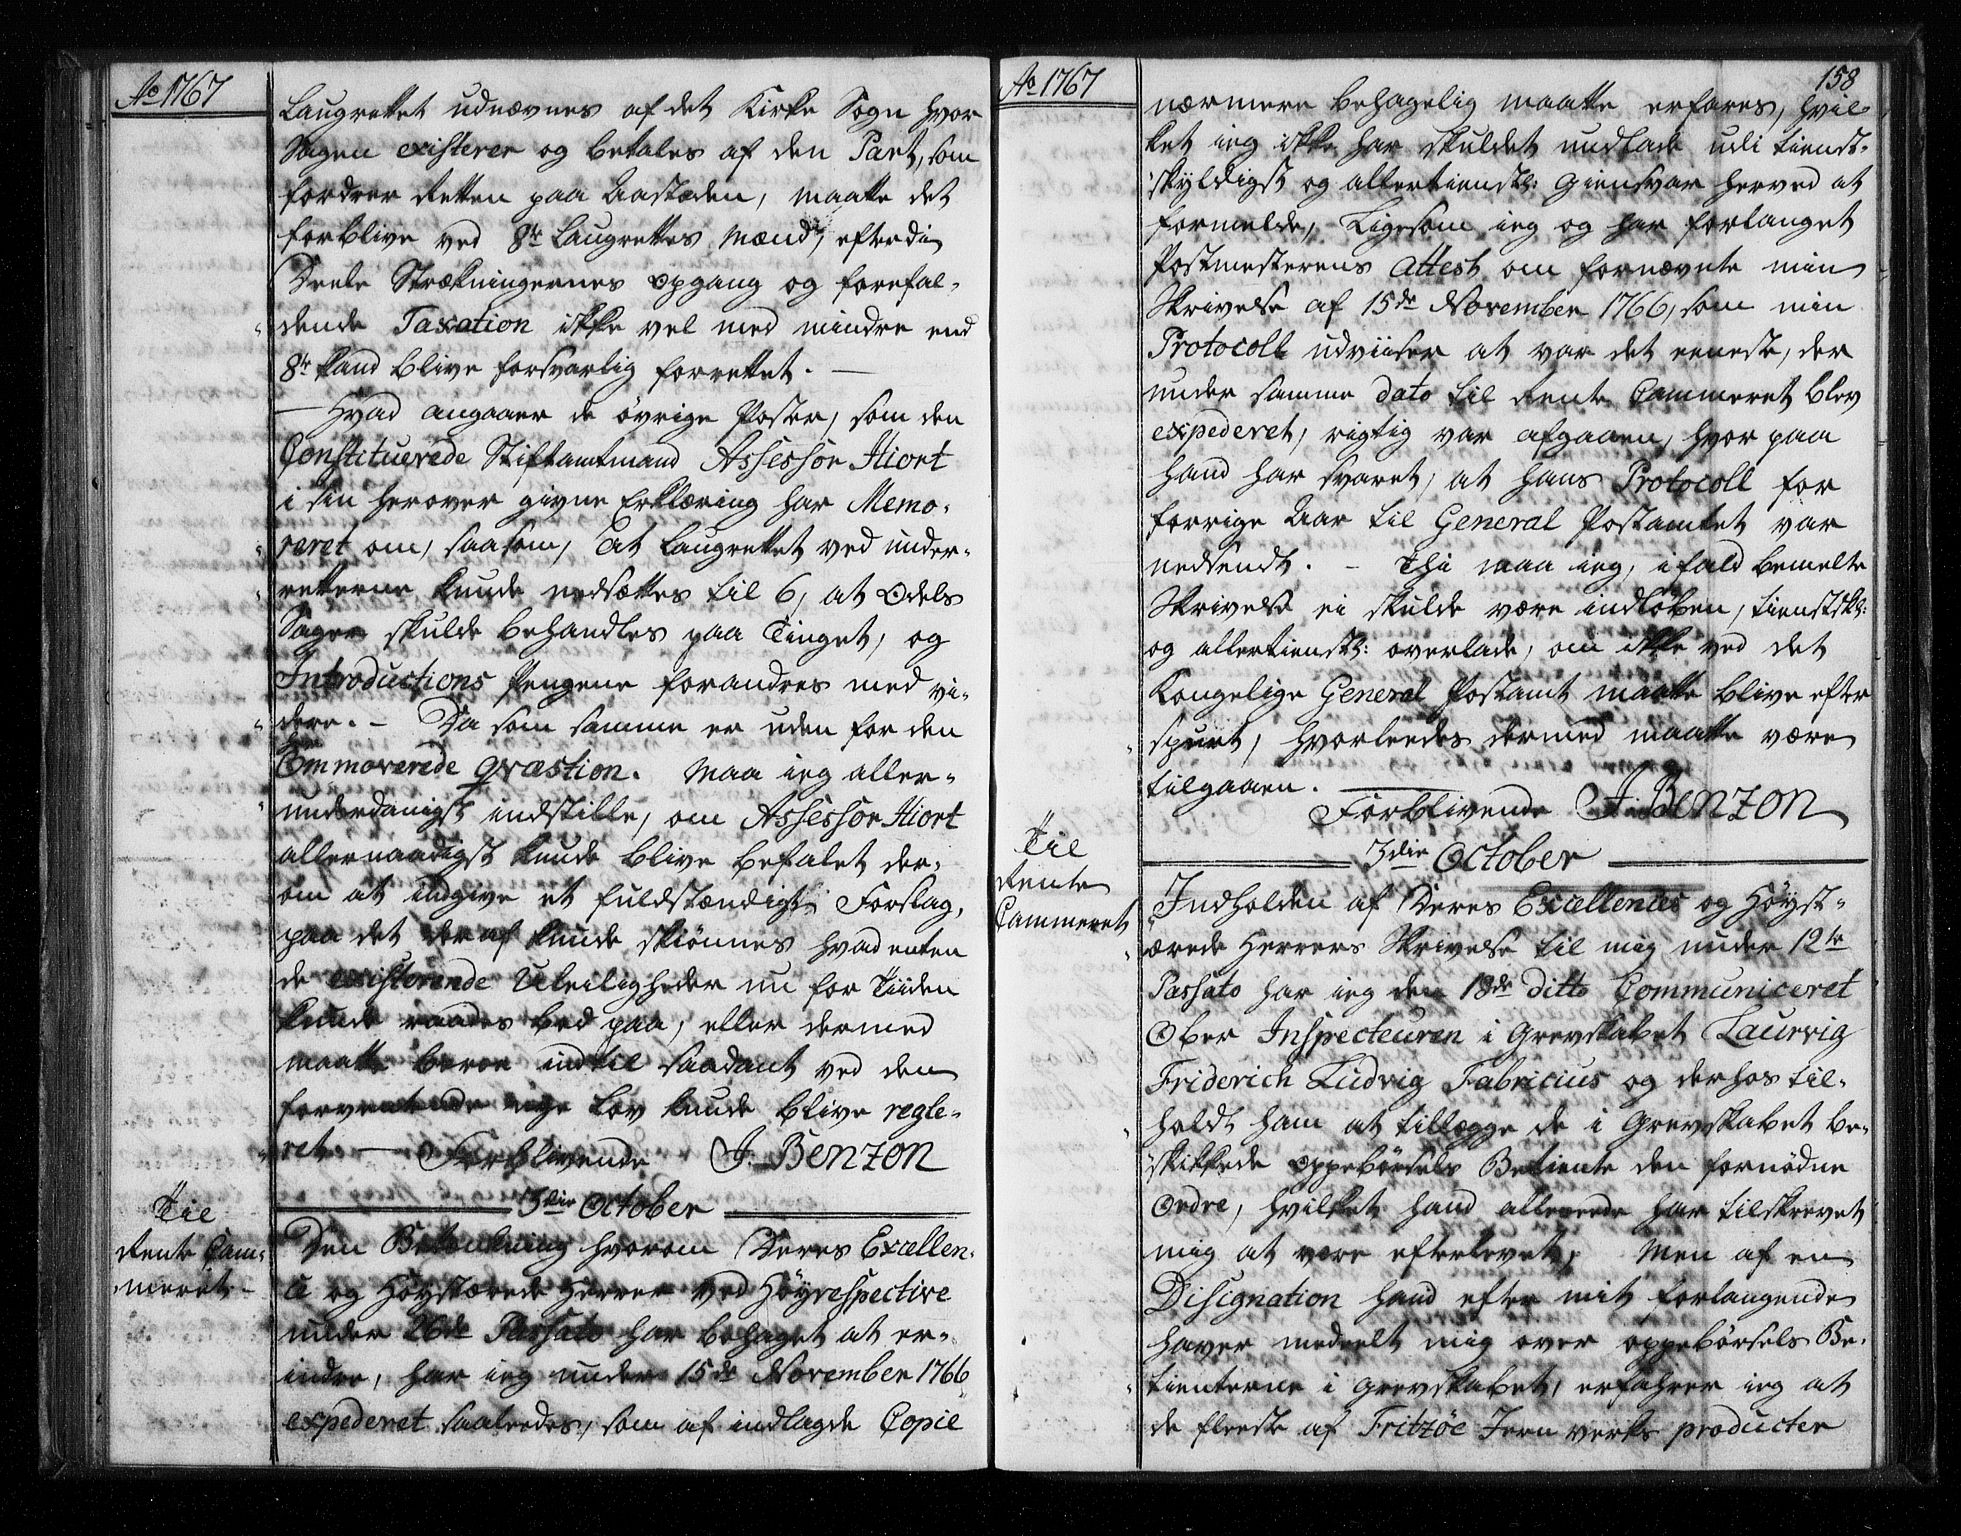 Ao 1767
Laugrettet udnævnes af det Kirke Sogn hvor
Sagen existerer og betales af den Part, som
fordrer Retten paa Aastæden, maatte det
forblive ved 8te Laugrettes Mænd, efterdi
Deele Strækningernes opgang og forefal-
dende Taxation ikke vel med mindre end
8te kand blive forsvarlig forrettet. —
— Hvad angaaer de øvrige Poster, som den
Constituerede Stiftamtmand Assessor Hiort
i sin herover givne Erklæring har Memo-
reret om, saasom, At Laugrettet ved under-
retterne kunde nedsættes til 6, at Odels
Sager skulde behandles paa Tinget, og
Introductions Pengene forandres med vi-
dere. – Da som samme er uden for den
Ommoverede qvæstion. Maa ieg aller-
underdanigst indstille, om Assessor Hiort
allernaadigst kunde blive befalet der-
om at indgive et fuldstændigt Forslag,
paa det deraf kunde skiønnes hvad enten
de existerende Uleiligheder nu for Tiiden
kunde raades bod paa, eller dermed
maatte beroe indtil saadant ved den
forventende nye Lov kunde blive regle-
ret. — Forblivende J. Benzon
3die October
Til
Rente Cam-
meret –
Den Betænkning hvorom Deres Excellen-
ce og Høystærede Herrer ved Høyrespective
under 26de Passato har behaget at er-
indre, har ieg under 15de November 1766
expederet saaledes, som af indlagde Copie
Ao 1767
158
nærmere behagelig maatte erfares, hvil-
ket ieg ikke har skuldet undlade udi tienst-
skyldigst og allertienstl: Giensvar herved at
formelde, Ligesom ieg og har forlanget
Postmesterens Attest om fornævnte min
Skrivelse af 15de November 1766, som min
Protocoll udviiser at var det eeneste, der
under samme dato til Rente Cammeret blev
expederet, rigtig var afgaaen, hvor paa
hand har svaret, at hans Protocoll for
forrige Aar til General Postamtet var
nedsendt. – Thi maa ieg, ifald bemelte
Skrivelse ei skulde være indløben, tienstskl:
og allertienstl: overlade, om ikke ved det
Kongelige General Postamt maatte blive efter
spurt, hvorleedes dermed maatte være
tilgaaen.
Forblivende J. Benzon
3die October
Til
Rente
Cammeret
Indholden af Deres Excellences og Høyst-
ærede Herrers Skrivelse til mig under 12te
Passato har ieg den 18de ditto Communiceret
Ober Inspecteuren i Grevskabet Laurvig
Friderich Ludvig Fabricius og derhos til-
holdt ham at tillægge de i Grevskabet be-
skikkede oppebørsels Betiente den fornødne
Ordre, hvilket hand allerede har tilskrevet
mig at være efterlevet, Men af en
Disignation hand efter mit forlangende
haver meddelt mig over oppebørsels Be-
tienterne i Grevskabet, erfahrer ieg at
de fleeste af Fritzøe Jern verks producter